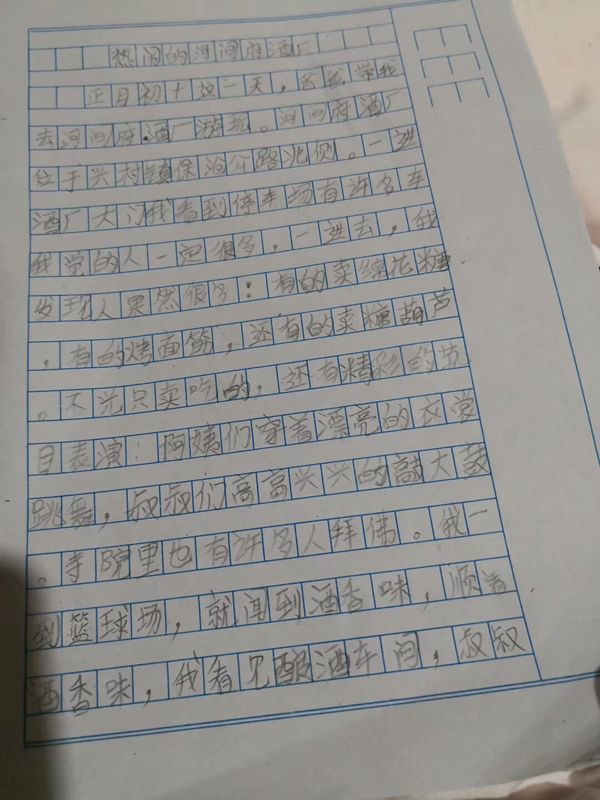 热闹的河间府酒厂
正月初十这一天，爸爸带我
去河间府酒厂游玩。河间府酒厂
位于兴村镇保沧公路北侧。一进
酒厂大门我看到停车场有许多车
我觉的人一定很多，一进去，我
发现人果然很多：有的卖绵花糖
，有的烤面筋，还有的卖糖葫芦
。不光只卖吃的，还有精彩的节
目表演：阿姨们穿着漂亮的衣裳
跳舞，叔叔们高高兴兴的敲大鼓
。寺院里也有许多人拜佛。我一
到篮球场，就闻到酒香味，顺着
酒香味，我看见酿酒车间，叔叔